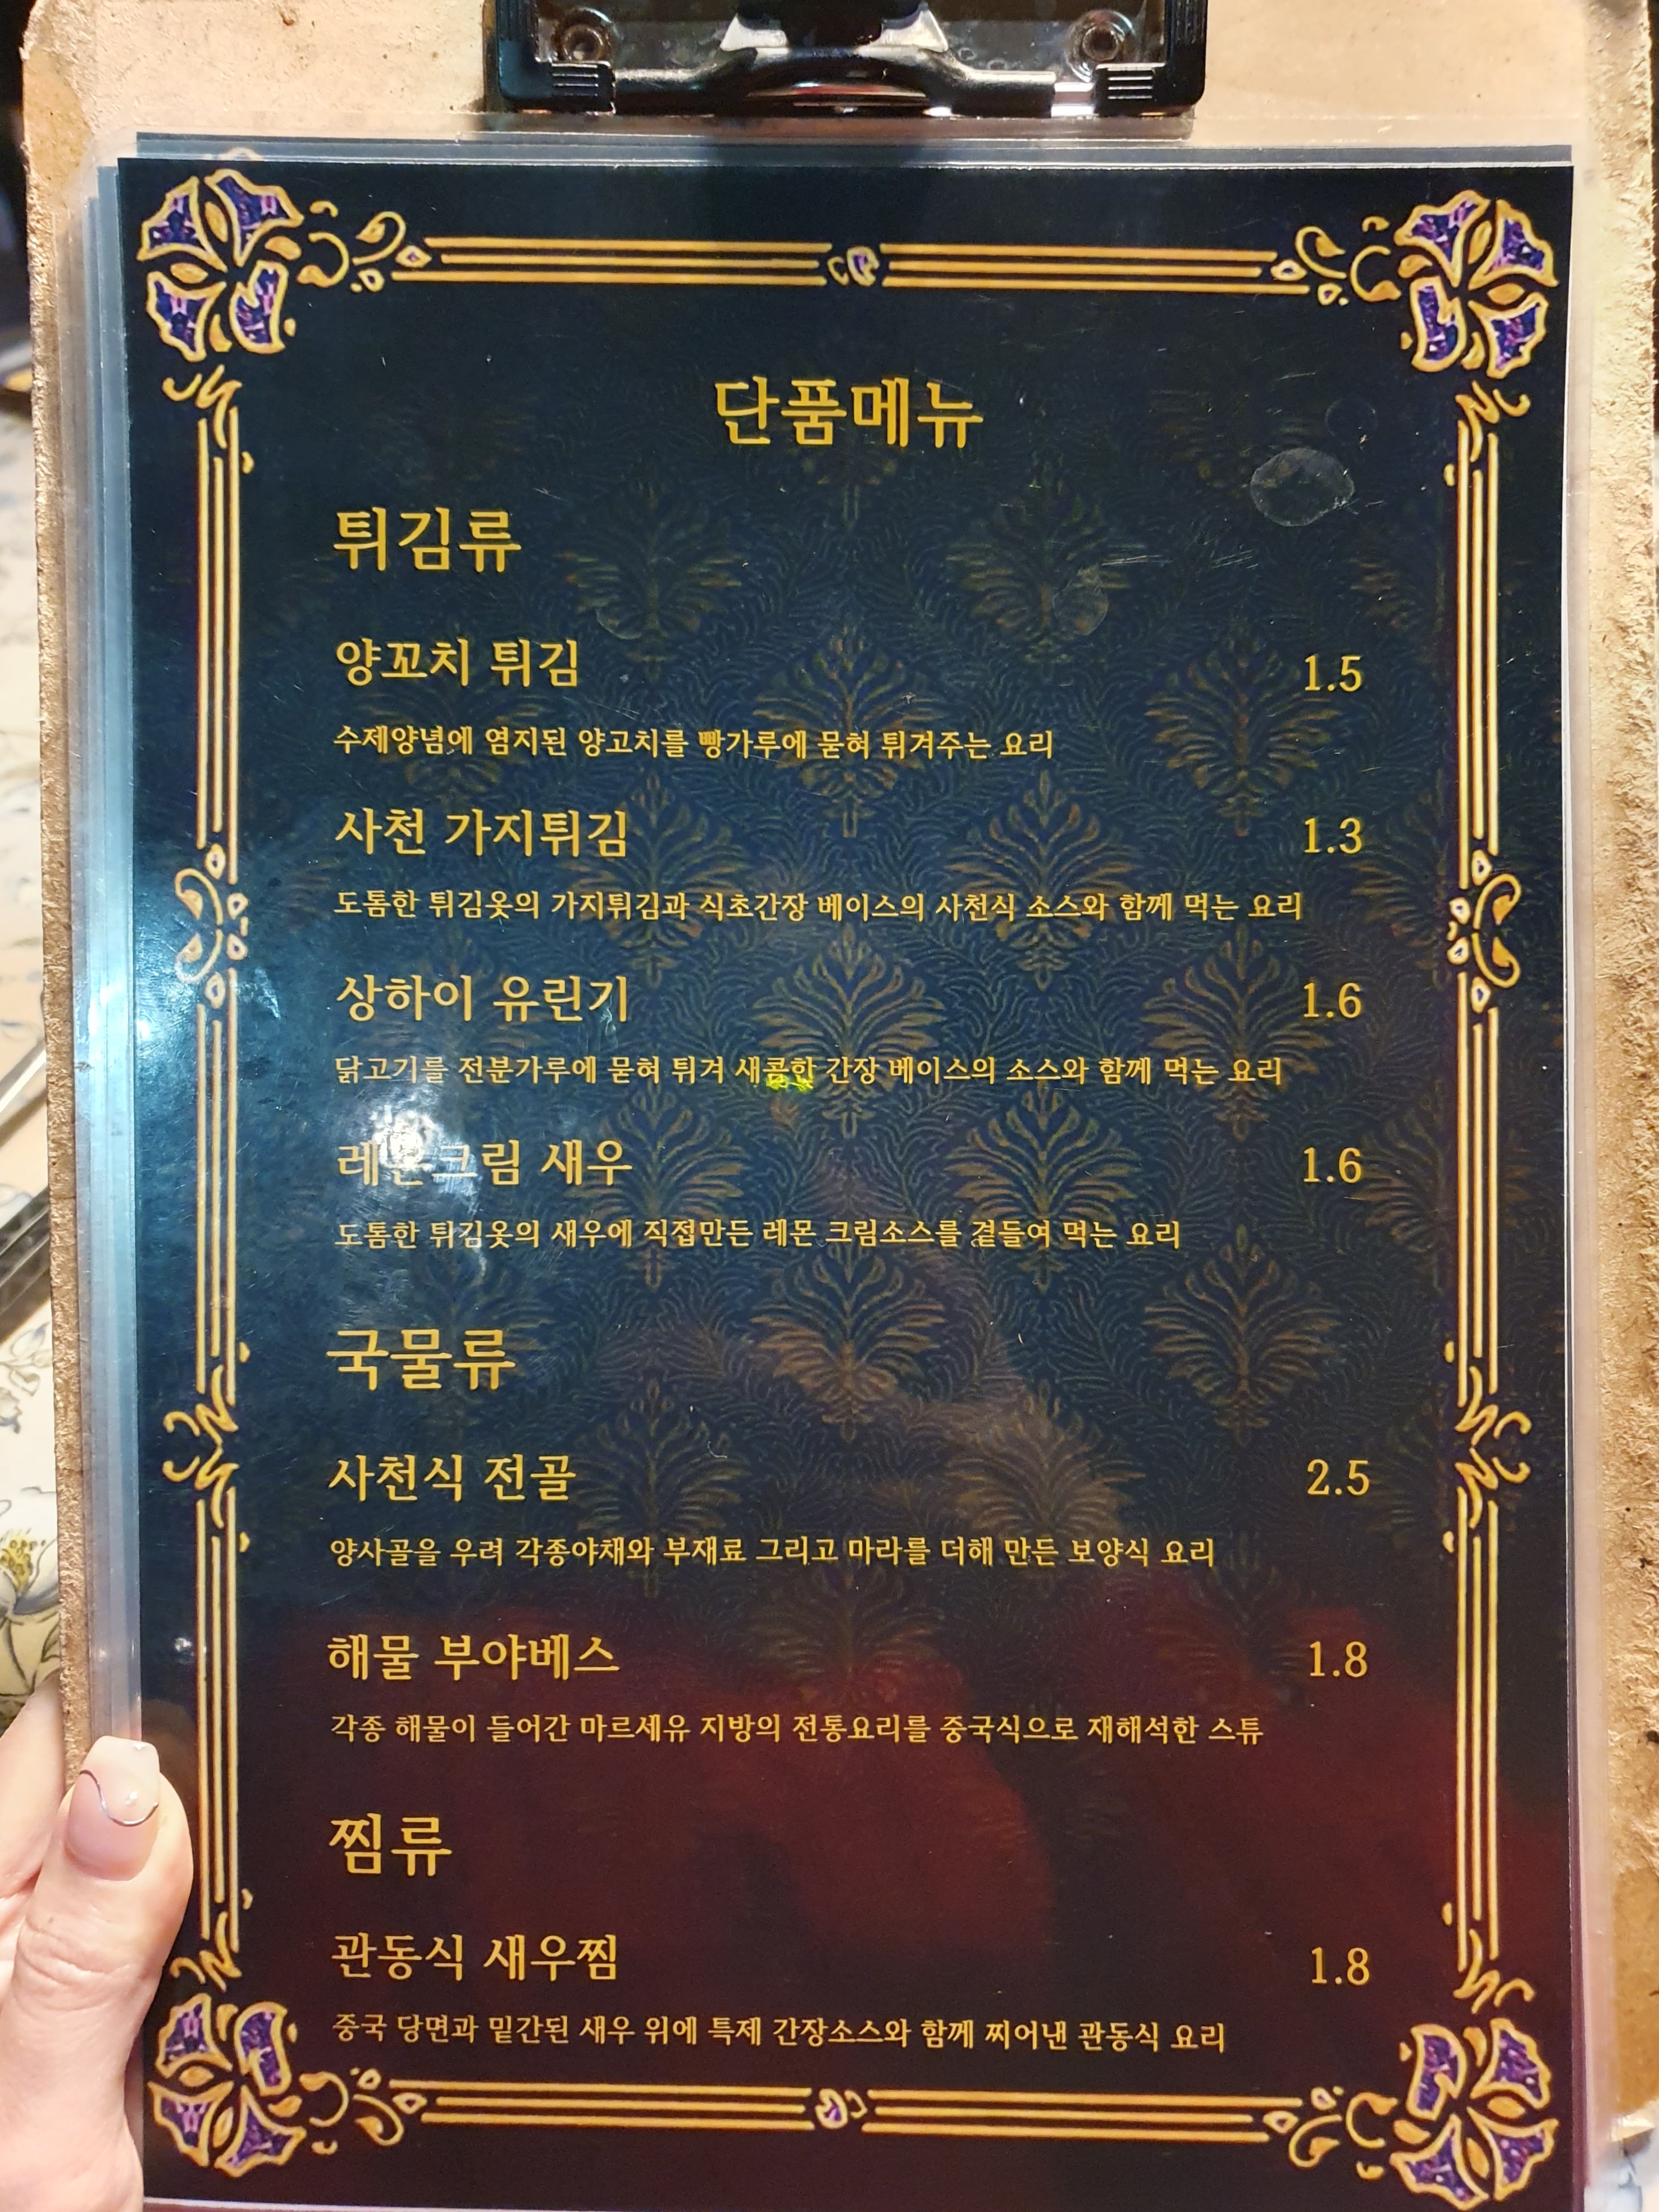 단품메뉴
튀김류
양꼬치 튀김 1.5
수제양념에 염지된 양고치를 빵가루에 묻혀 튀겨주는 요리
사천 가지튀김 1.3
도톰한 튀김옷의 가지튀김과 식초간장 베이스의 사천식 소스와 함께 먹는 요리
상하이 유린기 1.6
닭고기를 전분가루에 묻혀 튀겨 새콤한 간장 베이스의 소스와 함께 먹는 요리
레몬크림 새우 1.6
도톰한 튀김옷의 새우에 직접만든 레몬 크림소스를 곁들여 먹는 요리
국물류
사천식 전골 2.5
양사골을 우려 각종야채와 부재료 그리고 마라를 더해 만든 보양식 요리
해물 부야베스 1.8
각종 해물이 들어간 마르세유 지방의 전통요리를 중국식으로 재해석한 스튜
찜류
관동식 새우찜 1.8
중국 당면과 밑간된 새우 위에 특제 간장소스와 함께 찌어낸 관동식 요리